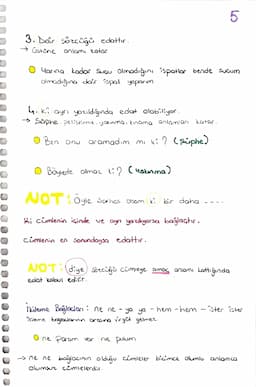 5
3. Dair sözcüğü edattır.
→ Üstüne anlamı katar
Yarına kadar suçu olmadığını ispatlar bende suçum
olmadığına dair ispat yaparım
4. ki ayrı yazıldığında edat olabiliyor.
→ Şüphe pekiştirme, yakınma, kınama anlamları katar.
Ben onu aramadım mı ki? (Şüphe)
Böylede olmaz ki? (Yakınma)
NOT: Öyle sarhoş olsam ki bir daha ....
Ki cümlenin içinde ve ayrı yazılıyorsa bağlaçtır.
Cümlenin en sonundaysa edattır.
NOT: diye sözcüğü cümleye amaç anlamı kattığında
edat kabul edilir.
İkileme Bağlaçları: ne ne - ya ya - hem - hem - ister ister
ikileme bağlaçlarının arasına virgül gelmez
ne param var ne pulum
→ Ne ne bağlacının olduğu cümleler biçimce olumlu anlamca
olumsuz cümlelerdir